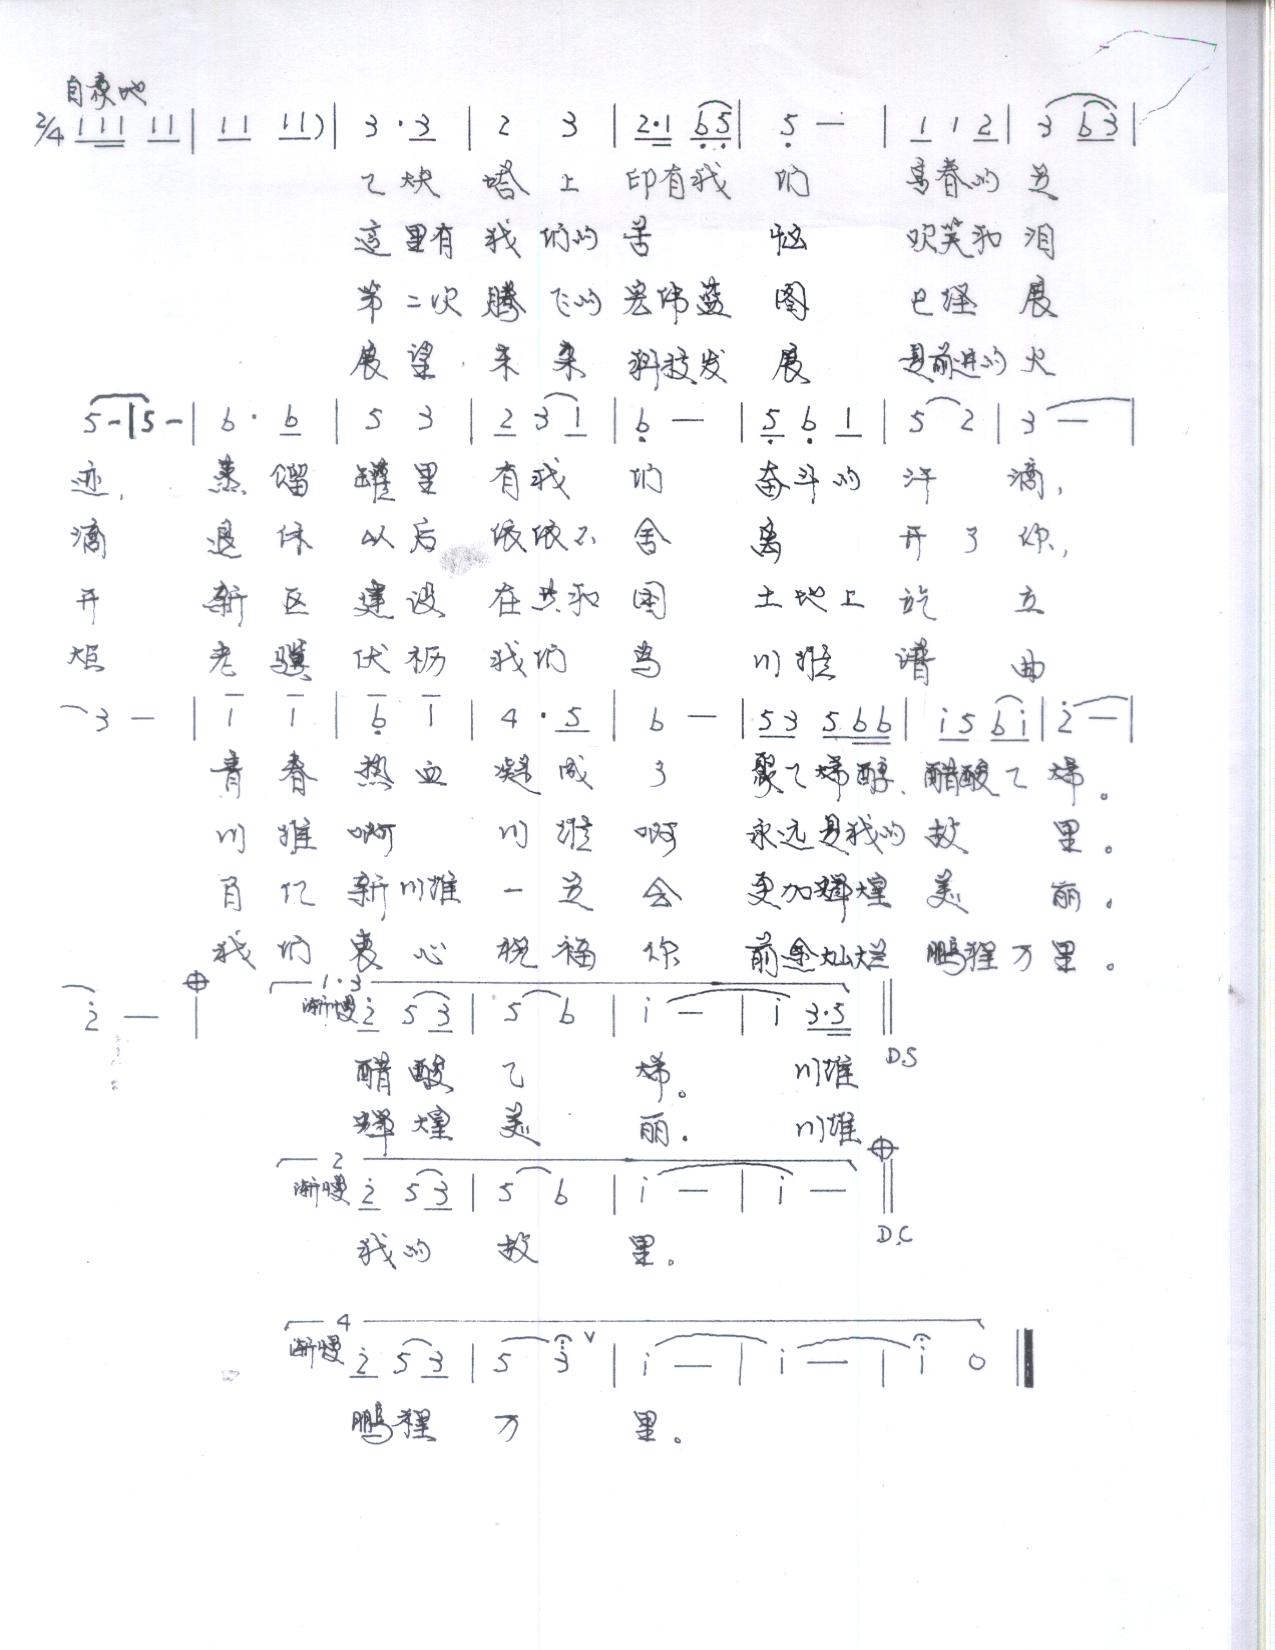 自豪地
2/4 1 1 1 1 1 | 1 1 1 1) | 3 · 3 | 2 3 | 2·1 6 5 | 5 — | 1 1 2 | 3 6 3 |
乙炔 塔上 印有我们 青春的足
这里有我们的苦恼 欢笑和泪
第二次腾飞的宏伟蓝图 已经展
展望 未来 科技发展 是前进的火
5 – | 5 – | 6 · 6 | 5 3 | 2 3 1 | 6 — | 5 6 1 | 5 2 | 3 — |
迹, 蒸馏罐里有我们 奋斗的汗滴,
滴 退休以后依依不舍 离开了你,
开 新区建设在共和国 土地上屹立
炬 老骥伏枥我们为 川维谱曲
3 — | 1 1 | 6 1 | 4 · 5 | 6 — | 5 3 5 6 6 | i 5 6 i | 2 — |
青春热血凝成了 聚乙烯醇、醋酸乙烯。
川维啊 川维啊 永远是我的故里。
自亿 新川维一定会 更加辉煌美丽。
我们衷心祝福你 前途灿烂 鹏程万里。
2 — | 1·3 渐慢 2 5 3 | 5 6 | i — | i 3·5 ‖ D.S
醋酸乙烯。 川维
辉煌美丽. 川维
2 渐慢 2 5 3 | 5 6 | i — | i — ‖ D.C
我的故里。
4 渐慢 2 5 3 | 5 3 ∨ | i — | i — | i 0 ‖
鹏程万里。